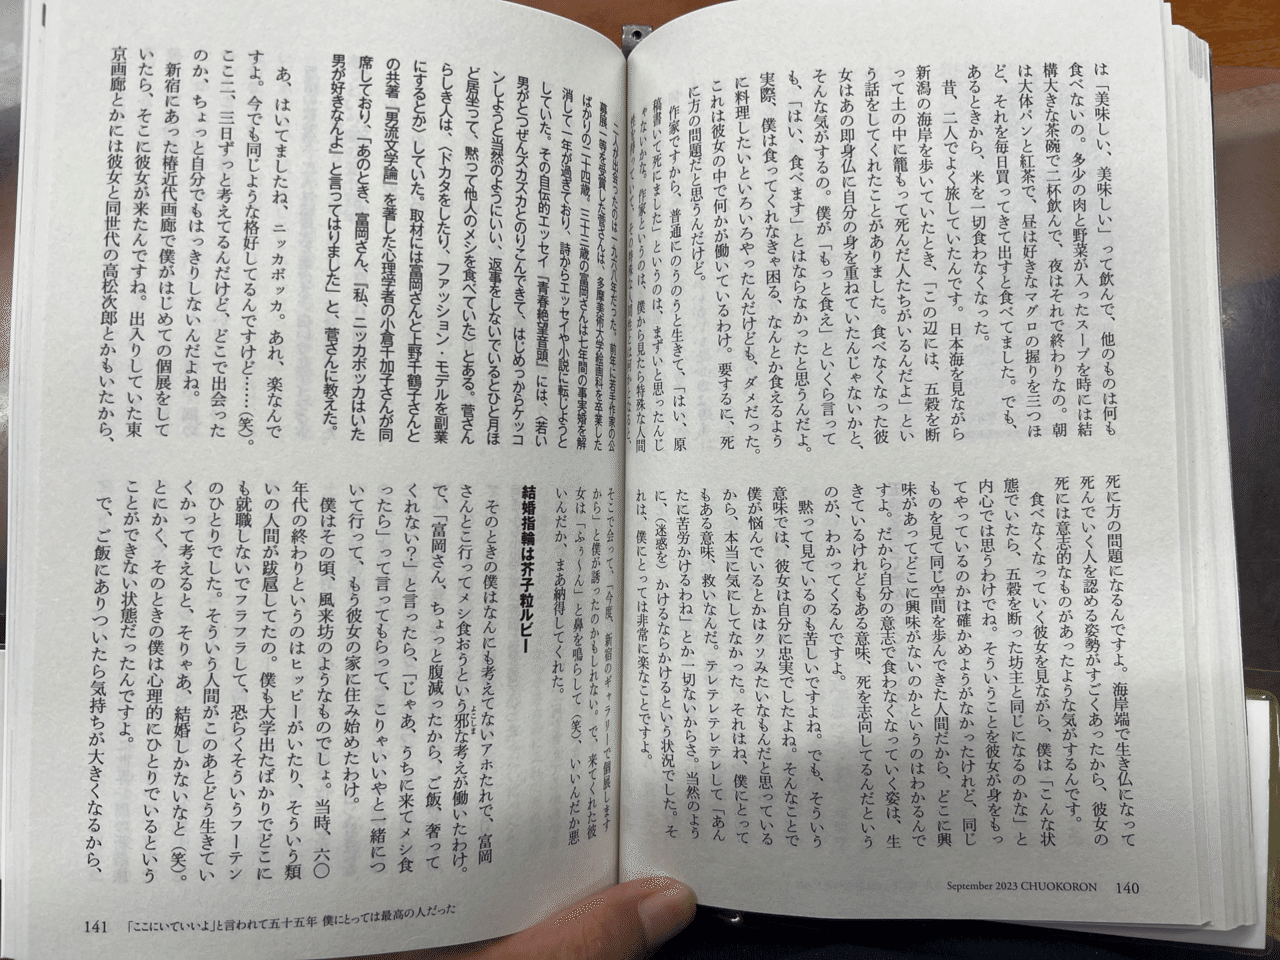 は「美味しい、美味しい」って飲んで、他のものは何も
食べないの。多少の肉と野菜が入ったスープを時には結
構大きな茶碗で二杯飲んで、夜はそれで終わりなの。朝
は大体パンと紅茶で、昼は好きなマグロの握りを三つほ
ど、それを毎日買ってきて出すと食べてました。でも、
あるときから、米を一切食わなくなった。
昔、二人でよく旅していたんです。日本海を見ながら
新潟の海岸を歩いていたとき、「この辺には、五穀を断
って土の中に籠もって死んだ人たちがいるんだよ」とい
う話をしてくれたことがありました。食べなくなった彼
女はあの即身仏に自分の身を重ねていたんじゃないかと、
そんな気がするの。僕が「もっと食え」といくら言って
も、「はい、食べます」とはならなかったと思うんだよ。
実際、僕は食ってくれなきゃ困る、なんとか食えるよう
に料理したいといろいろやったんだけども、ダメだった。
これは彼女の中で何かが働いているわけ。要するに、死
に方の問題だと思うんだけど。
作家ですから、普通にのうのうと生きて、「はい、原
稿書いて死にました」というのは、まずいと思ったんじ
ゃないかな。作家というのは、僕から見たら特殊な人間
死に方の問題になるんですよ。海岸端で生き仏になって
死んでいく人を認める姿勢がすごくあったから、彼女の
死には意志的なものがあったような気がするんです。
食べなくなっていく彼女を見ながら、僕は「こんな状
態でいたら、五穀を断った坊主と同じになるのかな」と
内心では思うわけでね。そういうことを彼女が身をもっ
てやっているのかは確かめようがなかったけれど、同じ
ものを見て同じ空間を歩んできた人間だから、どこに興
味があってどこに興味がないのかというのはわかるんで
すよ。だから自分の意志で食わなくなっていく姿は、生
きているけれどもある意味、死を志向してるんだという
のが、わかってくるんですよ。
黙って見ているのも苦しいですよね。でも、そういう
意味では、彼女は自分に忠実でしたよね。そんなことで
僕が悩んでいるとかはクソみたいなもんだと思っている
から、本当に気にしてなかった。それはね、僕にとって
もある意味、救いなんだ。テレテレテレテレして「あん
たに苦労かけるわね」とか一切ないからさ。当然のよう
に、（迷惑を）かけるならかけるという状況でした。そ
れは、僕にとっては非常に楽なことですよ。
September 2023 CHUOKORON 140
二人が出会ったのは一九六八年だった。前年に若手作家の公
募展一等を受賞した菅さんは、多摩美術大学絵画科を卒業した
ばかりの二十四歳。三十三歳の富岡さんは七年間の事実婚を解
消して一年が過ぎており、詩からエッセイや小説に転じようと
していた。その自伝的エッセイ『青春絶望音頭』には、〈若い
男がとつぜんズカズカとのりこんできて、はじめっからケッコ
ンしようと当然のようにいい、返事をしないでいるとひと月ほ
ど居坐って、黙って他人のメシを食べていた〉とある。菅さん
らしき人は、〈ドカタをしたり、ファッション・モデルを副業
にするとか〉していた。取材には富岡さんと上野千鶴子さんと
の共著『男流文学論』を著した心理学者の小倉千加子さんが同
席しており、「あのとき、富岡さん、『私、ニッカボッカはいた
男が好きなんよ』と言ってはりました」と、菅さんに教えた。
あ、はいてましたね、ニッカボッカ。あれ、楽なんで
すよ。今でも同じような格好してるんですけど……（笑）。
ここ二、三日ずっと考えてるんだけど、どこで出会った
のか、ちょっと自分でもはっきりしないんだよね。
新宿にあった椿近代画廊で僕がはじめての個展をして
いたら、そこに彼女が来たんですね。出入りしていた東
京画廊とかには彼女と同世代の高松次郎とかもいたから、
そこで会って、「今度、新宿のギャラリーで個展します
から」と僕が誘ったのかもしれない。で、来てくれた彼
女は「ふぅ〜ん」と鼻を鳴らして（笑）、いいんだか悪
いんだか、まあ納得してくれた。
結婚指輪は芥子粒ルビー
そのときの僕はなんにも考えてないアホたれで、富岡
さんとこ行ってメシ食おうという邪な考えが働いたわけ。
よこしま
で、「富岡さん、ちょっと腹減ったから、ご飯、奢って
くれない？」と言ったら、「じゃあ、うちに来てメシ食
ったら」って言ってもらって、こりゃいいやと一緒につ
いて行って、もう彼女の家に住み始めたわけ。
僕はその頃、風来坊のようなものでしょ。当時、六〇
年代の終わりというのはヒッピーがいたり、そういう類
いの人間が跋扈してたの。僕も大学出たばかりでどこに
も就職しないでフラフラして、恐らくそういうフーテン
のひとりでした。そういう人間がこのあとどう生きてい
くかって考えると、そりゃあ、結婚しかないなと（笑）。
とにかく、そのときの僕は心理的にひとりでいるという
ことができない状態だったんですよ。
で、ご飯にありついたら気持ちが大きくなるから、
141 「ここにいていいよ」と言われて五十五年 僕にとっては最高の人だった